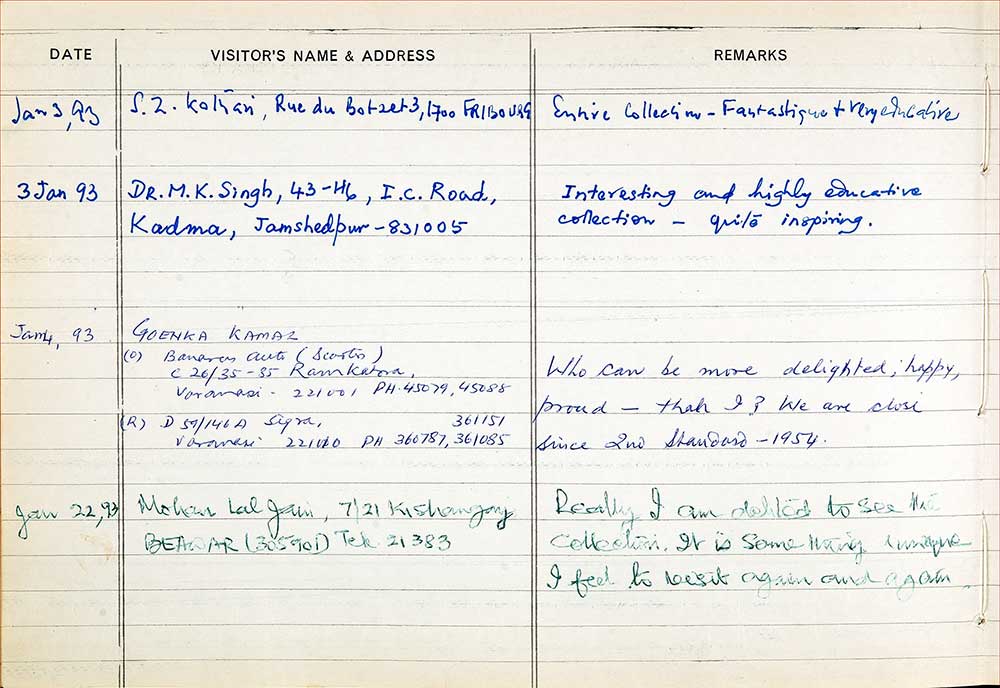 DATE VISITOR'S NAME & ADDRESS REMARKS
Jan 3, 93 S. Z. Kothari, Rue du Botzet 3, 1700 FRIBOURG Entire Collection - Fantastique + very educative
3 Jan 93 DR. M. K. Singh, 43-H6, I.C. Road, Interesting and highly educative
Kadma, Jamshedpur - 831005 collection - quite inspiring.
Jan 4, 93 GOENKA KAMAL
(O) Banaras Auto (Scooters)
C 26/35-35 Ramkatora, Who can be more delighted, happy,
Varanasi - 221001 PH. 45079, 45088
(R) D 59/146A Sigra, 361151 proud - than I? We are close
Varanasi 221010 PH 360787, 361085 since 2nd Standard - 1954.
Jan 22, 93 Mohan Lal Jain, 7/21 Kishanganj Really I am delited to see the
BEAWAR (305901) Tele 21383 Collection. It is something unique
I feel to visit again and again